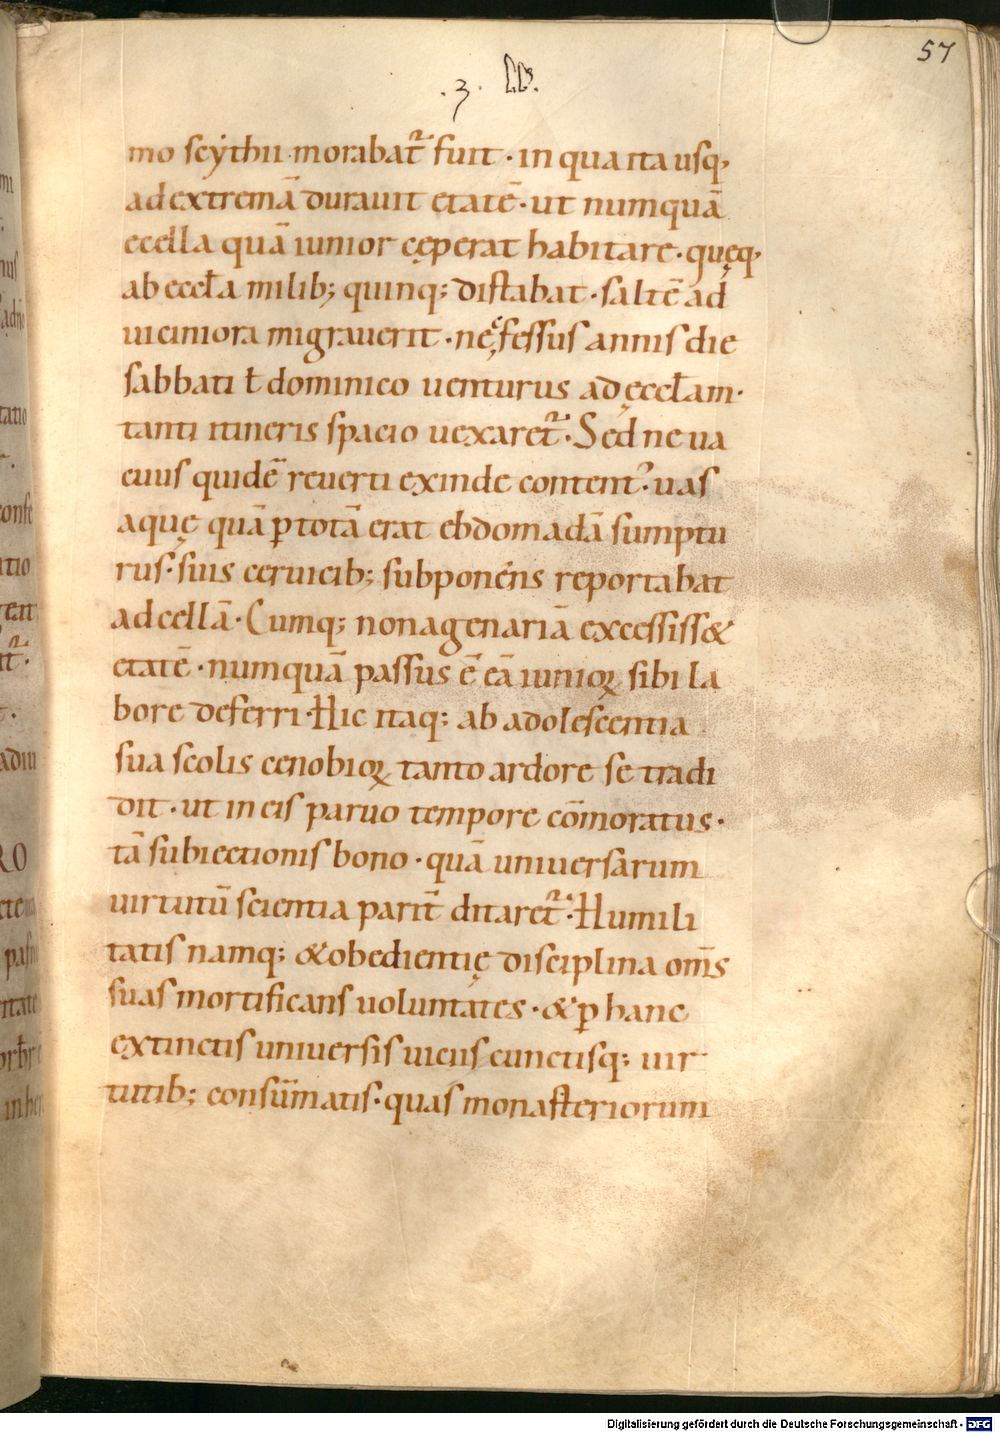 57
.3. ll.
mo scẏthii morabat᷑ fuit · in qua ita usq;
ad extremā durauit etatē · ut numquā
ecella quā iunior cęperat habitare · quęq;
ab eccła milib; quinq; distabat · saltē ad
uiciniora migrauerit · nę fessus annis die
sabbati ł dominico uenturus ad ęccłam ·
tanti itineris spacio uexaret᷑ · Sed ne ua
cuus quidē reuerti exinde content᷑ · uas
aquę quā ꝑ totā erat ebdomadā sumptu
rus · suis ceruicib; subponens reportabat
ad cellā · Cumq; nonagenariā excessiss&
etatē · numquā passus ē eā iunioꝝ sibi la
bore deferri · Hic itaq; ab adolescentia
sua scolis cenobioꝝ tanto ardore se tradi
dit · ut in eis paruo tempore cōmoratus ·
tā subiectionis bono · quā uniuersarum
uirtutū scientia parit̄ ditaret᷑ · Humili
tatis namq; & obedientię disciplina om̄s
suas mortificans uoluntates · & ꝑ hanc
extinctis uniuersis uiciis cunctisq; uir
tutib; consūmatis · quas monasteriorum
Digitalisierung gefördert durch die Deutsche Forschungsgemeinschaft - DFG